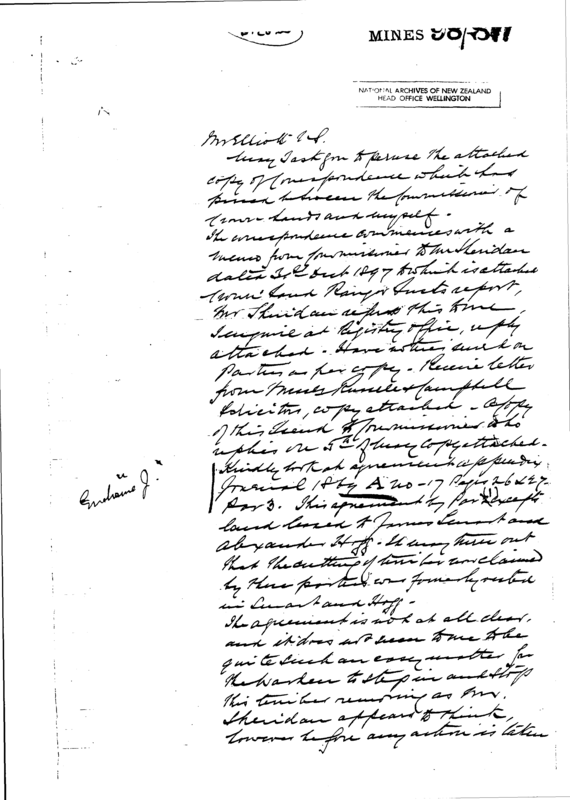 MINES 98/
NATIONAL ARCHIVES OF NEW ZEALAND
HEAD OFFICE WELLINGTON
Mr Elliott U.S.
May I ask you to peruse the attached
copy of Correspondence which has
passed between the Commissioner of
Crown Lands and myself.
The correspondence commences with a
memo from Commissioner to Mr Sheridan
dated Dect 1897 to which is attached
Crown Land Ranger report,
Mr Sheridan this to me,
I enquire at Registry Office, reply
attached - Have notice served on
Parties as per copy - Receive letter
from Messrs Russell & Campbell
Solicitors, copy attached - Copy
of this I send to Commissioner who
replies on 5th of May Copy attached -
Kindly look at agreement appendix
Journal No - 17 Pages 26 & 27
Par 3. This agreement by Par excepts
land leased to James Smart and
Alexander Hogg. It may turn out
that the cutting of timber now claimed
by these parties was formerly vested
in Smart and Hogg -
The agreement is not at all clear,
and it does not seem to me to be
quite such an easy matter for
the Warden to step in and stop
this timber removing as Mr.
Sheridan appears to think,
however before any action is taken
"Enclosure J."